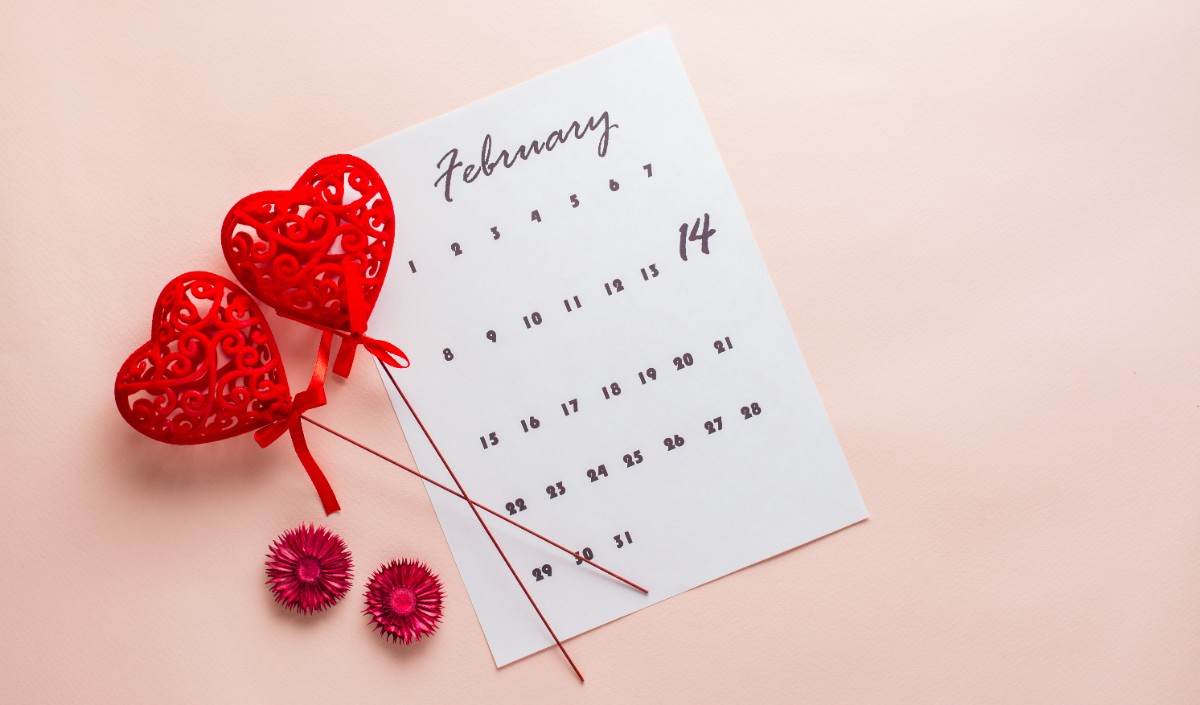 February
1 2 3 4 5 6 7
8 9 10 11 12 13 14
15 16 17 18 19 20 21
22 23 24 25 26 27 28
29 30 31